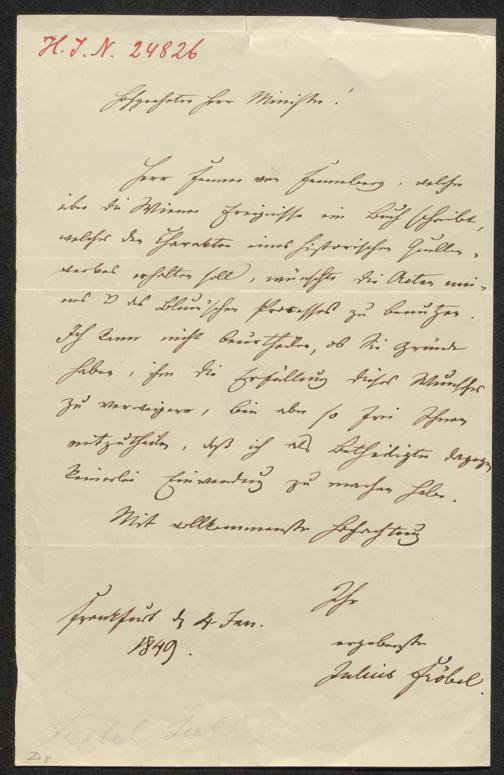 H. I. N. 24826
Hochgeehrter Herr Minister!
Herr Fenner von Fenneberg, welcher
über die Wiener Ereignisse ein Buch schreibt,
welches den Charakter eines historischen Quellen-
werkes erhalten soll, wünschte die Acten mei-
nes u des Blum'schen Processes zu benutzen.
Ich kann nicht beurtheilen, ob Sie Gründe
haben, ihm die Erfüllung dieses Wunsches
zu verweigern, bin aber so frei Ihnen
mitzutheilen, daß ich als Betheiligter dagegen
keinerlei Einwendung zu machen habe.
Mit vollkommenster Hochachtung
Ihr
ergebenster
Julius Fröbel.
Frankfurt d 4 Jan.
1849.
Fröbel Jul